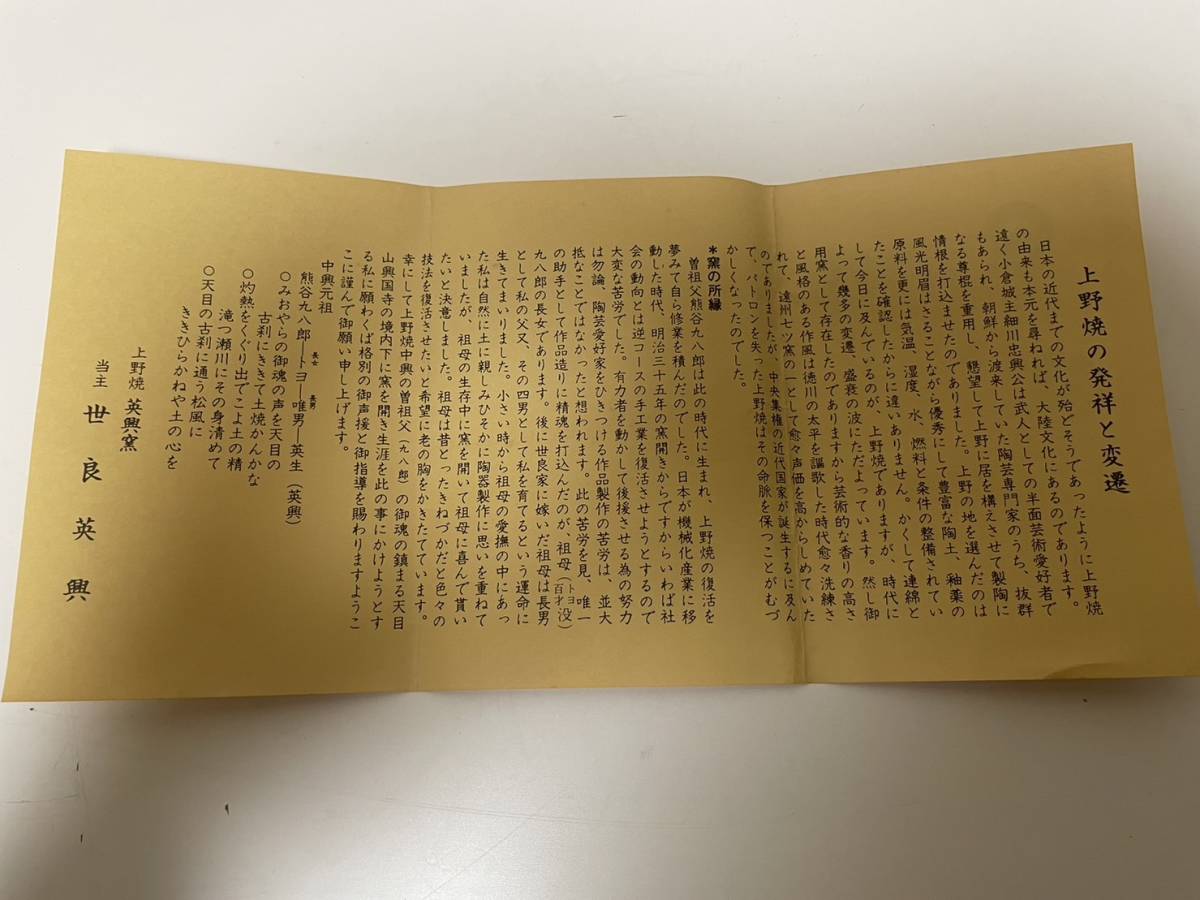 上野焼の発祥と変遷
日本の近代までの文化が殆どそうであったように上野焼
の由来も本元を尋ねれば、大陸文化にあるのであります。
遠く小倉城主細川忠興公は武人としての半面芸術愛好者で
もあられ、朝鮮から渡来していた陶芸専門家のうち、抜群
なる尊楷を重用し、懇望して上野に居を構えさせて製陶に
情根を打込ませたのでありました。上野の地を選んだのは
風光明眉はさることながら優秀にして豊富な陶土、釉薬の
原料を更には気温、湿度、水、燃料と条件の整備されてい
たことを確認したからに違いありません。かくして連綿と
して今日に及んでいるのが、上野焼でありますが、時代に
よって幾多の変遷、盛衰の波にただよっています。然し御
用窯として存在したのでありますから芸術的な香りの高さ
と風格のある作風は徳川の太平を謳歌した時代愈々洗練さ
れて、遠州七ツ窯の一として愈々声価を高からしめていた
のでありましたが、中央集権の近代国家が誕生するに及ん
で、パトロンを失った上野焼はその命脈を保つことがむづ
かしくなったのでした。
*窯の所縁
曽祖父熊谷九八郎は此の時代に生まれ、上野焼の復活を
夢みて自ら修業を積んだのでした。日本が機械化産業に移
動した時代、明治三十五年の窯開きからですからいわば社
会の動向とは逆コースの手工業を復活させようとするので
大変な苦労でした。有力者を動かして後援させる為の努力
は勿論、陶芸愛好家をひきつける作品製作の苦労は、並大
抵なことではなかったと想われます。此の苦労を見、唯一
の助手として作品造りに精魂を打込んだのが、祖母(トヨ百才没)
九八郎の長女であります。後に世良家に嫁いだ祖母は長男
として私の父文、その四男として私を育てるという運命に
生きてまいりました。小さい時から祖母の愛撫の中にあっ
た私は自然に土に親しみひそかに陶器製作に思いを重ねて
いましたが、祖母の生存中に窯を開いて祖母に喜んで貰い
たいと決意しました。祖母は昔とったきねづかだと色々の
技法を復活させたいと希望に老の胸をかきたてています。
幸にして上野焼中興の曽祖父(九八郎)の御魂の鎮まる天目
山興国寺の境内下に窯を開き生涯を此の事にかけようとす
る私に願わくば格別の御声援と御指導を賜わりますようこ
こに謹んで御願い申し上げます。
中興元祖
熊谷九八郎―長女トヨ―長男唯男―英生(英興)
○みおやらの御魂の声を天目の
古刹にききて土焼かんかな
○灼熱をくぐり出でこよ土の精
滝つ瀬川にその身清めて
○天目の古刹に通う松風に
ききひらかねや土の心を
上野焼 英興窯
当主 世良英興